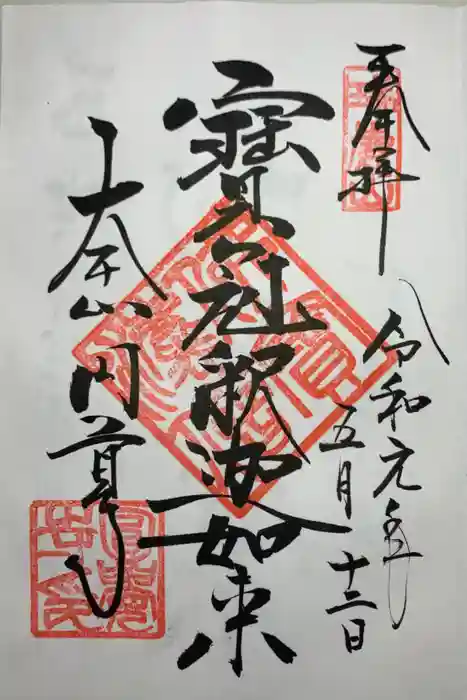 奉拝
令和元年
五月十三日
寶冠釈迦如来
大本山円覚寺